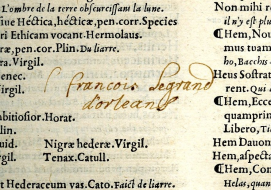 L'ombre de la terre obscurcissant la lune.
sive Hectica, hecticæ, pen.corr. Species
ri Ethicam vocant. Hermolaus.
ræ, pen.corr. Plin. Du liarre.
ra. Virgil.
enec.
Virgil.
françois Legrand
d'orleans
mbitiosior. Horat.
lin.
Nigræ hederæ. Virgil.
Tenax. Catull.
t Hederaceum vas. Cato. Faict de liarre.
Non mihi r
il n'y est plus
¶Hem, Nou
mus tuam
ho, Bacchis
Heus Sostrat
rent. Qui
¶Hem, Ecc
quamprim
Libero, Ti
Hem Davom
Hem, aspecta
¶Hem, C
Helas, quand